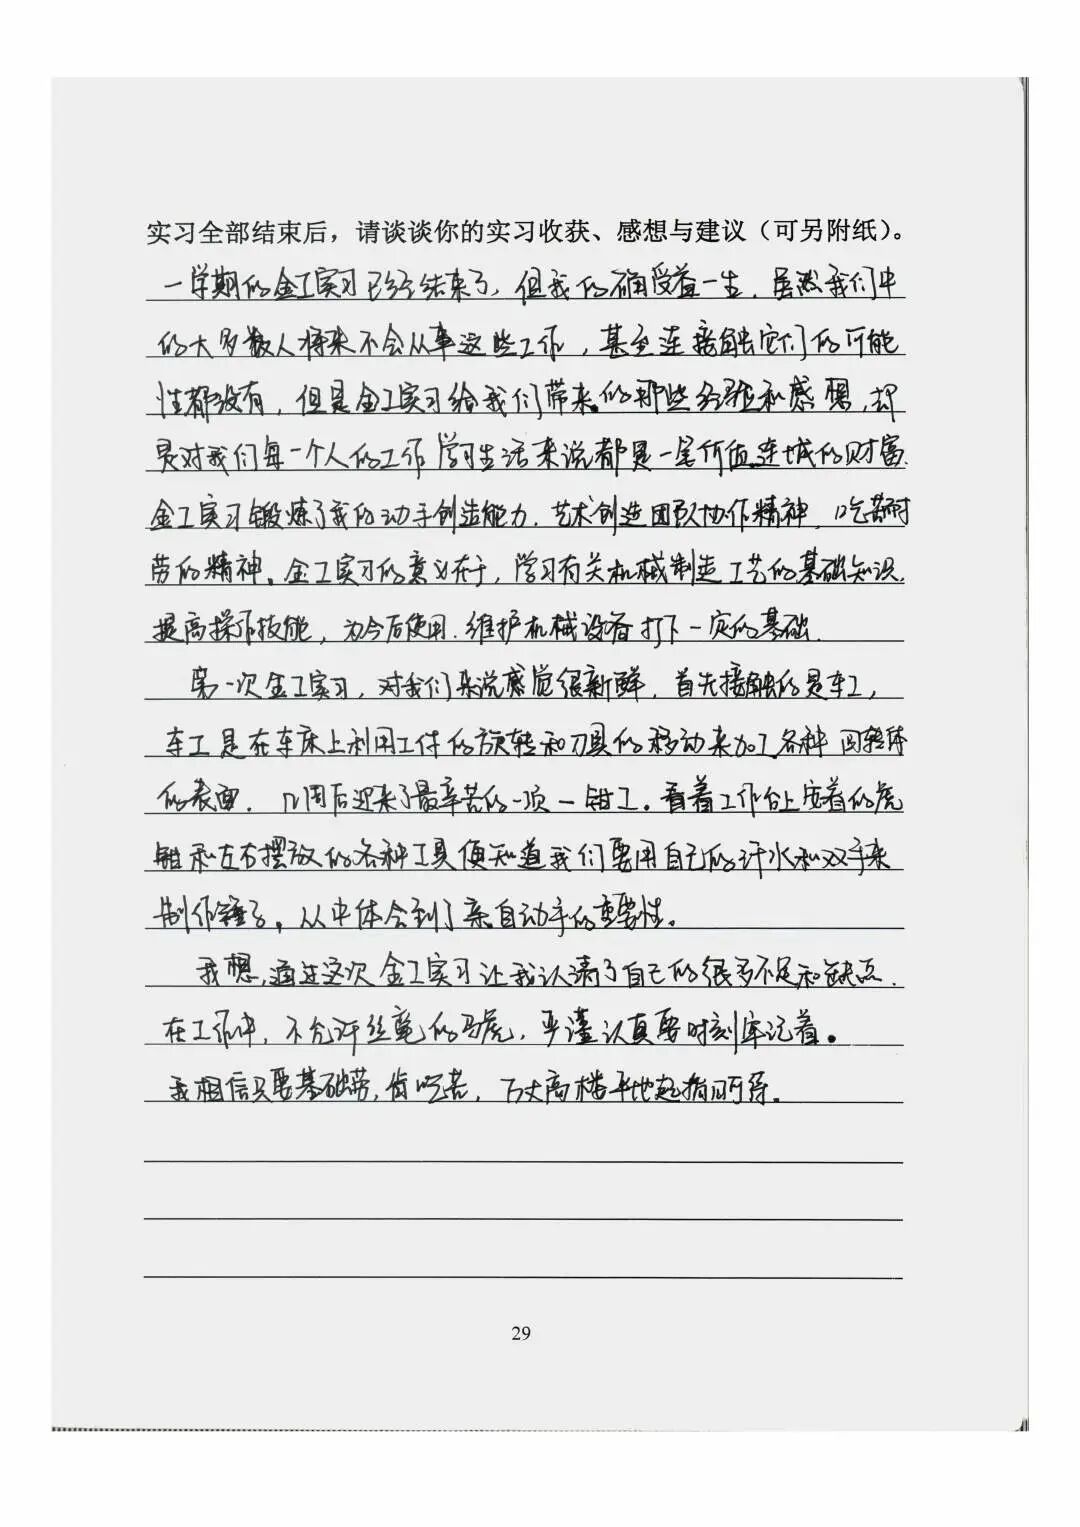 实习全部结束后，请谈谈你的实习收获、感想与建议（可另附纸）。
一学期的金工实习已经结束了，但我的确受益一生．虽然我们中
的大多数人将来不会从事这些工作，甚至连接触它们的可能
性都没有，但是金工实习给我们带来的那些经验和感想，却
是对我们每一个人的工作学习生活来说都是一笔价值连城的财富．
金工实习锻炼了我的动手创造能力．艺术创造团队协作精神．吃苦耐
劳的精神。金工实习的意义在于，学习有关机械制造工艺的基础知识．
提高操作技能，为今后使用．维护机械设备打下一定的基础．
第一次金工实习，对我们来说感觉很新鲜．首先接触的是车工，
车工是在车床上利用工件的旋转和刀具的移动来加工各种回转体
的表面．几周后迎来了最辛苦的一项—钳工。看着工作台上安着的虎
钳和左右摆放的各种工具便知道我们要用自己的汗水和双手来
制作锤子。从中体会到了亲自动手的重要性。
我想，通过这次金工实习让我认清了自己的很多不足和缺点．
在工作中，不允许丝毫的马虎，严谨认真要时刻牢记着。
我相信只要基础劳，肯吃苦，万丈高楼平地起指日可待．
29